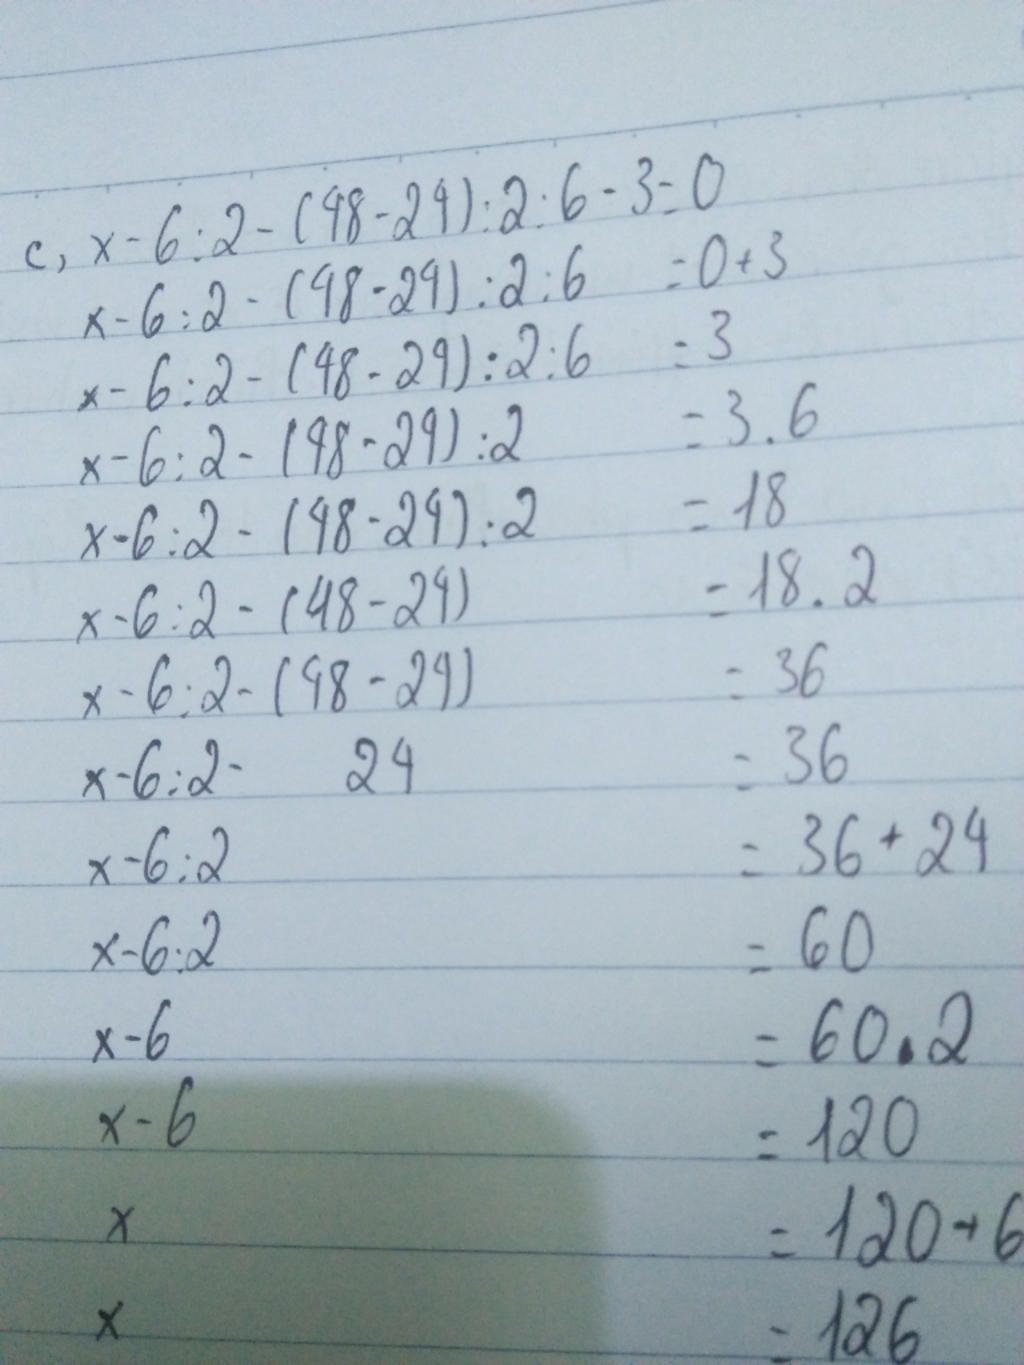 c, x-6:2-(48-24):2:6-3=0
x-6:2-(48-24):2:6 =0+3
x-6:2-(48-24):2:6 =3
x-6:2-(48-24):2 =3.6
x-6:2-(48-24):2 =18
x-6:2-(48-24) =18.2
x-6:2-(48-24) =36
x-6:2- 24 =36
x-6:2 =36+24
x-6:2 =60
x-6 =60.2
x-6 =120
x =120+6
x =126